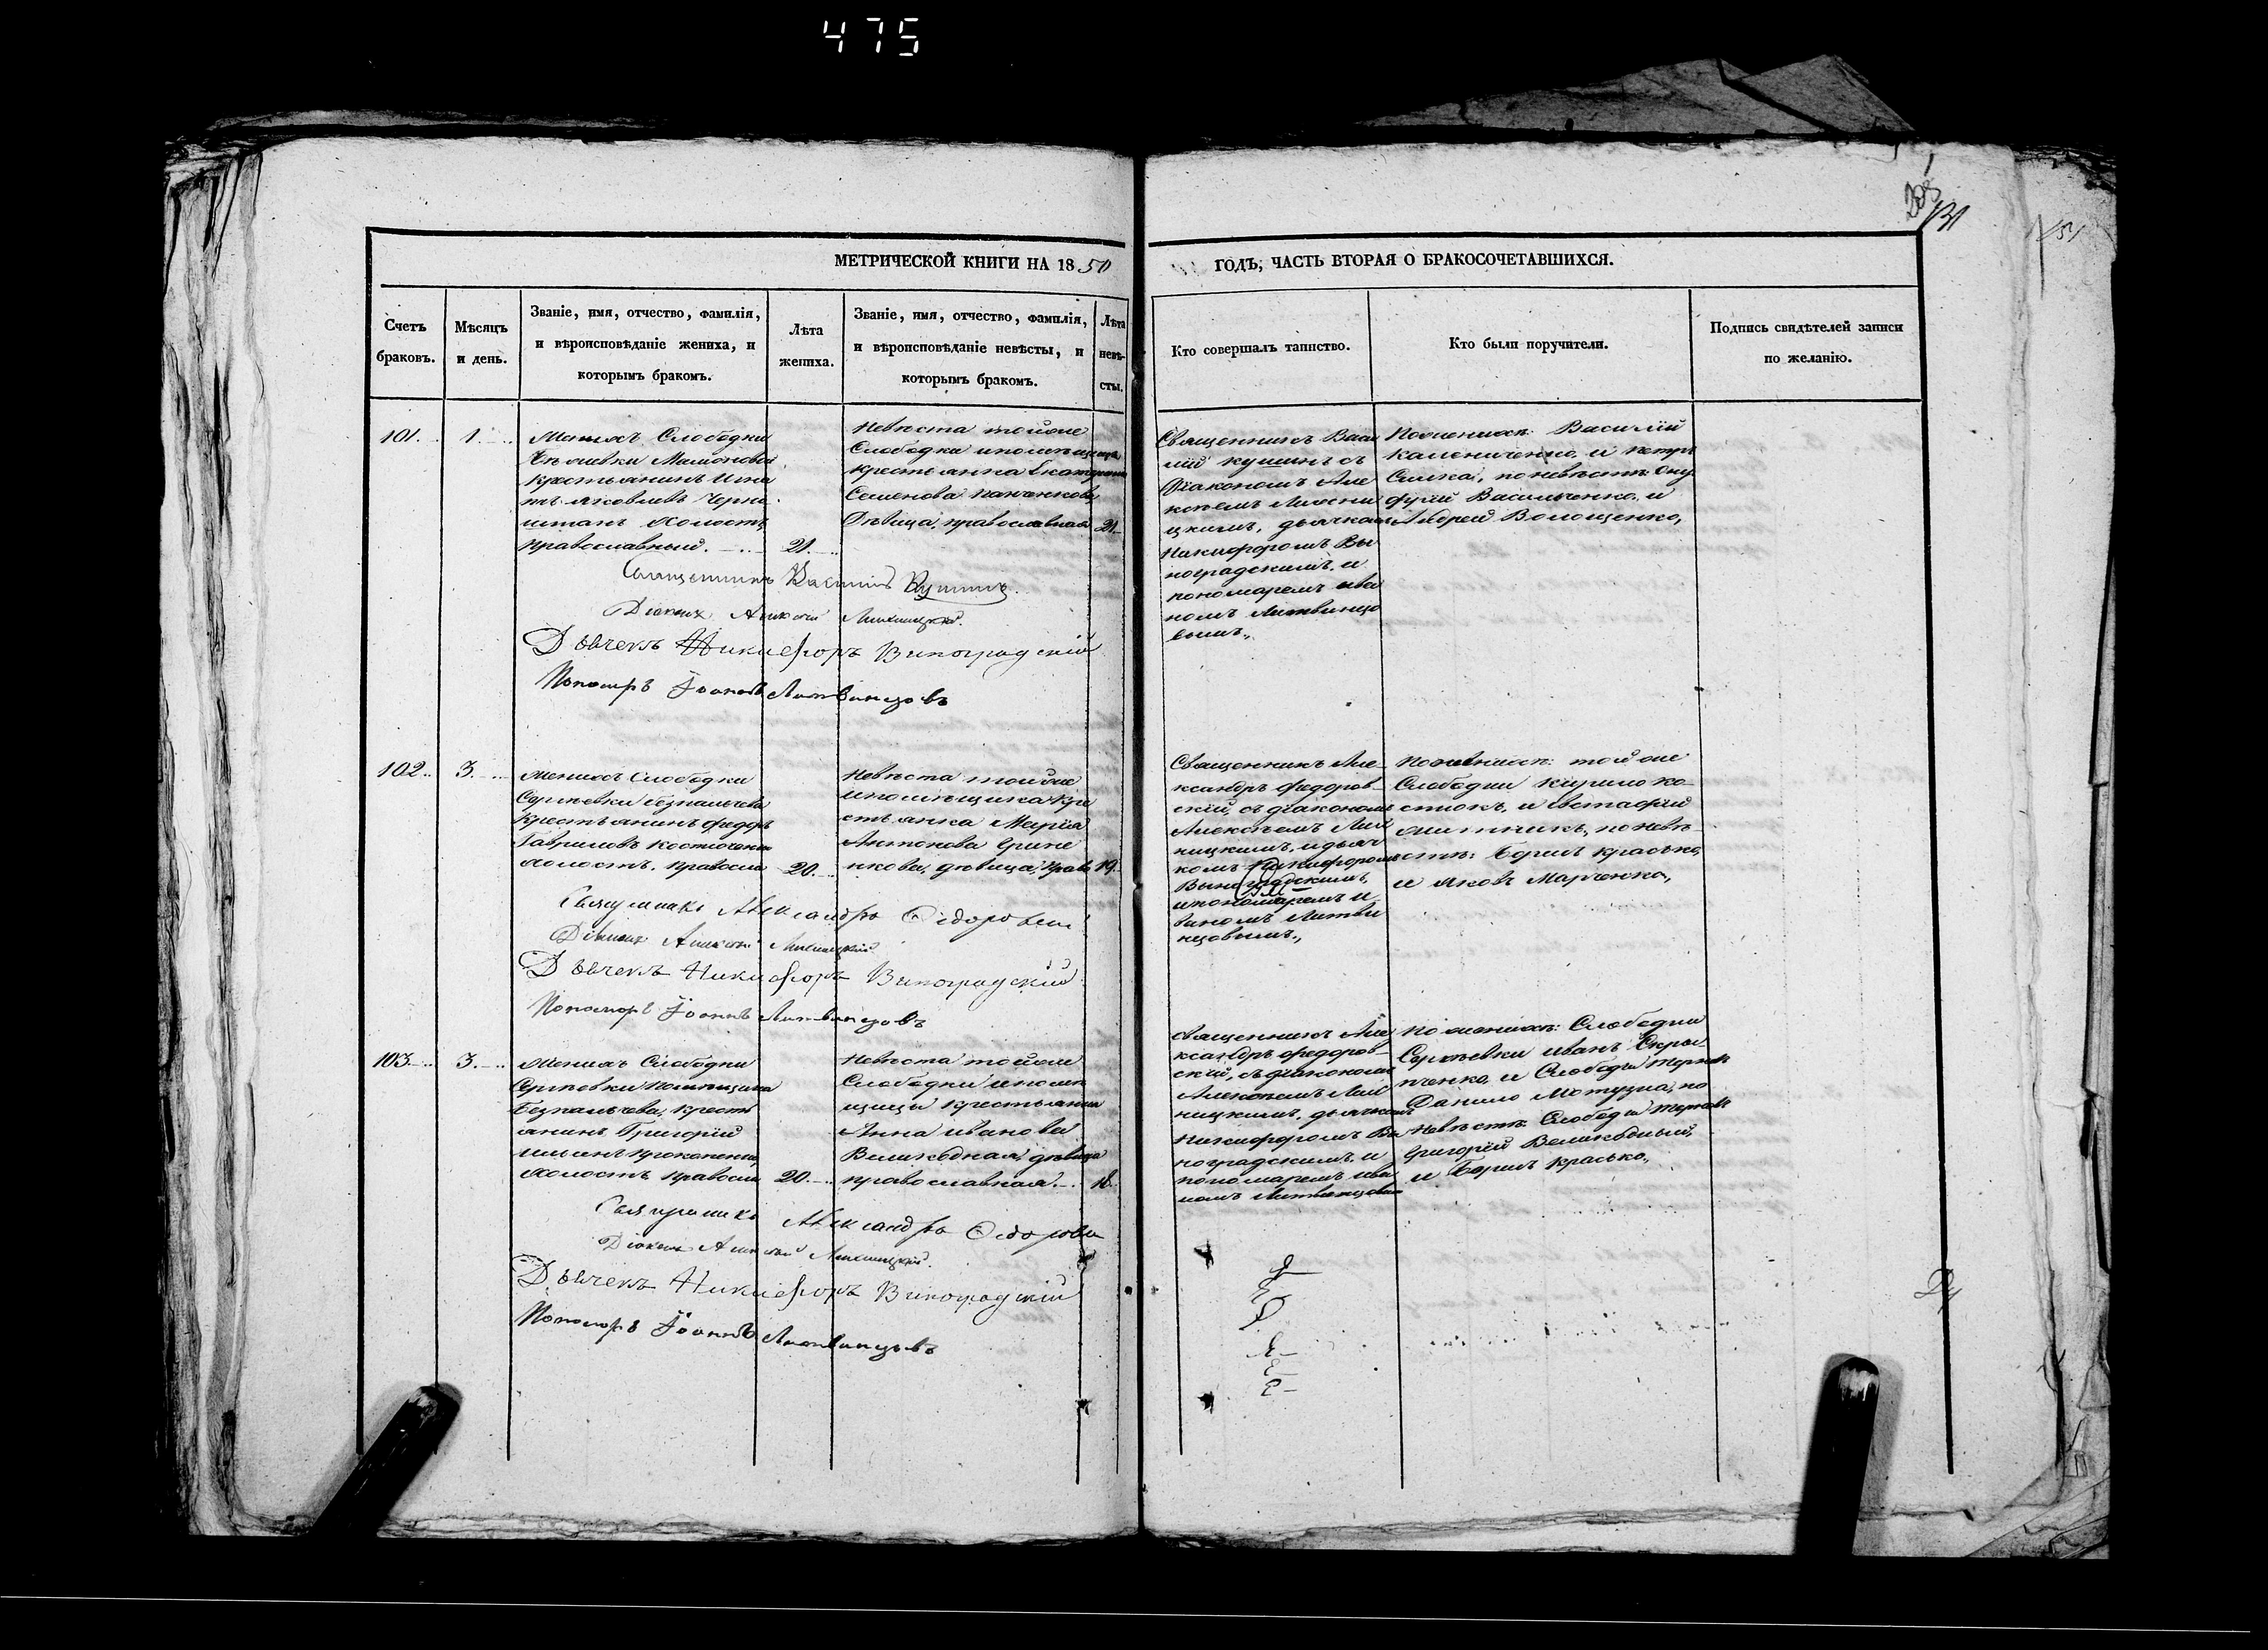 475
МЕТРИЧЕСКОЙ КНИГИ НА 1850
ГОДЪ, ЧАСТЬ ВТОРАЯ О БРАКОСОЧЕТАВШИХСЯ.
Счетъ браковъ.
Мѣсяцъ и день.
Званіе, имя, отчество, фамилія,
и вѣроисповѣданіе жениха, и
которымъ бракомъ.
Лѣта
жениха.
Званіе, имя, отчество, фамилія,
и вѣроисповѣданіе невѣсты, и
которымъ бракомъ.
Лѣта
невѣ-
сты.
Кто совершалъ таинство.
Кто были поручители.
Подпись свидѣтелей записи
по желанію.
101.
1.
Женихъ Слободки
Крестьянинъ Игна
тъ Яковлевъ Черно
штанъ холостъ
православный.
21.
Невѣста тойже
Слободки
крестьянка Екатерина
Семенова
Дѣвица, православная
21.
Священникъ Васи
лій Кушинъ съ
Діакономъ Але
ксѣемъ
цкимъ, дьячкомъ
Никифоромъ Ви
ноградскимъ, и
пономаремъ Ива
номъ Литвинцо
вымъ.,
По женихѣ: Василій
Камениченко, и Петръ
по невѣстѣ: Ону
фрій Васильченко, и
Андрей Волощенко,
Священникъ Василій Кушинъ
Діаконъ Алексѣй
Дьячекъ Никифоръ Виноградскій
Пономарь Іоаннъ Литвинцовъ
102.
3.
Женихъ Слободки
Сергѣевки Безпальчева
Крестьянинъ Федоръ
Гавриловъ Костюченко
холостъ. правосла
20.
Невѣста тойже
и помѣщика кре
стьянка Марія
Антонова Грине
нкова, дѣвица, Право
19.
Священникъ Але
ксандръ Федоров
скій, съ діакономъ
Алексѣемъ
ницкимъ, и дьяч
комъ Никифоромъ
Виноградскимъ,
и пономаремъ И
ваномъ Литви
нцовымъ.,
По женихѣ: той же
Слободки Кирило Ко
стюкъ, и Евстафій
по невѣ
стѣ: Борисъ Красько,
и Яковъ Марченко,
Священникъ Александръ Федоровскій
Діаконъ Алексѣй
Дьячекъ Никифоръ Виноградскій
Пономарь Іоаннъ Литвинцовъ
103.
3.
Женихъ Слободки
Сергѣевки Помѣщика
Безпальчева, крестъ
янинъ Григорій
холостъ правосла
20.
Невѣста тойже
Слободки и помѣ
щицы крестьянка
Анна Иванова
Великодная, дѣвица
православная.
18.
Священникъ Але
ксандръ Федоров
скій, съ діакономъ
Алексѣемъ
ницкимъ, дьячкомъ
Никифоромъ Ви
ноградскимъ, и
пономаремъ Ива
номъ Литвинцовымъ
По женихѣ: Слободки
Сергѣевки Иванъ Скры
пченко, и Слободки
Данило Мотузка, по
невѣстѣ: Слободки
Григорій Великодный,
и Борисъ Красько,
Священникъ Александръ Федоровскій
Діаконъ Алексѣй
Дьячекъ Никифоръ Виноградскій
Пономарь Іоаннъ Литвинцовъ